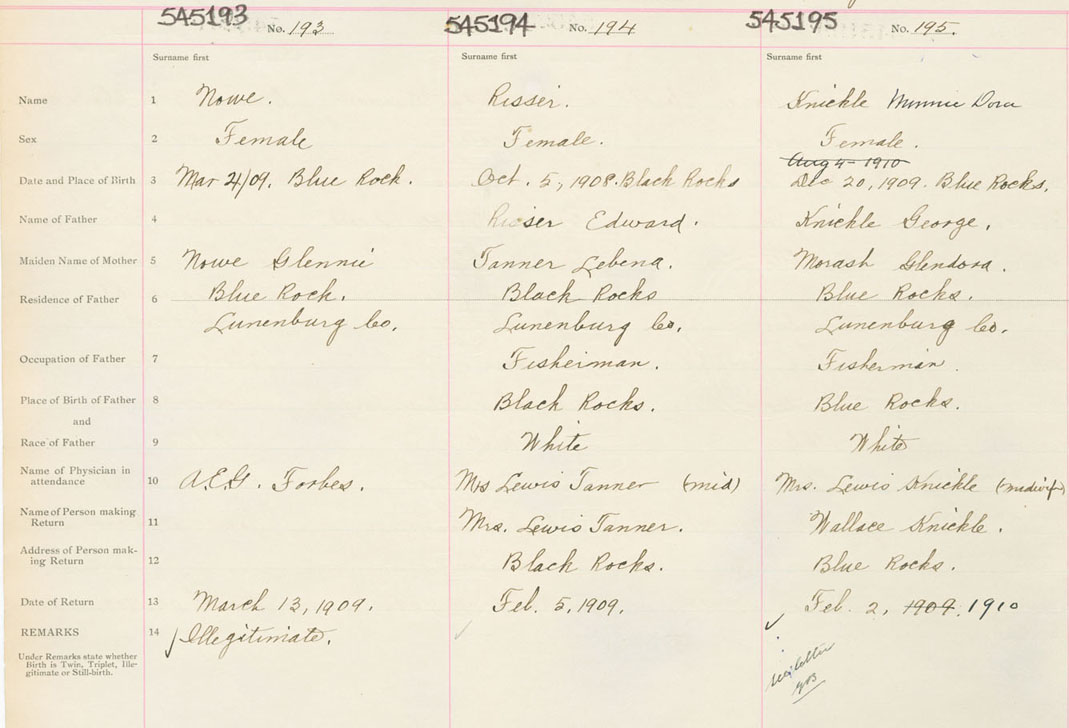 545193 No. 193 545194 No. 194 545195 No. 195.
Surname first Surname first Surname first
Name 1 Nowe. Risser. Knickle Minnie Dora
Sex 2 Female Female. Female.
Aug 4 - 1910
Date and Place of Birth 3 Mar 4/09. Blue Rock. Oct. 5, 1908. Black Rocks Dec 20, 1909. Blue Rocks.
Name of Father 4 Risser Edward. Knickle George.
Maiden Name of Mother 5 Nowe Glennie Tanner Lebena. Morash Glendora.
Residence of Father 6 Blue Rock. Black Rocks Blue Rocks.
Lunenburg Co. Lunenburg Co. Lunenburg Co.
Occupation of Father 7 Fisherman. Fisherman.
Place of Birth of Father 8 Black Rocks. Blue Rocks.
and
Race of Father 9 White White
Name of Physician in
attendance 10 A.E.G. Forbes. Mrs Lewis Tanner (mid) Mrs. Lewis Knickle (midwife)
Name of Person making
Return 11 Mrs. Lewis Tanner. Wallace Knickle.
Address of Person mak-
ing Return 12 Black Rocks. Blue Rocks.
Date of Return 13 March 13, 1909. Feb. 5, 1909. Feb. 2, 1909. 1910
REMARKS 14 Illegitimate.
Under Remarks state whether
Birth is Twin, Triplet, Ille-
gitimate or Still-birth.